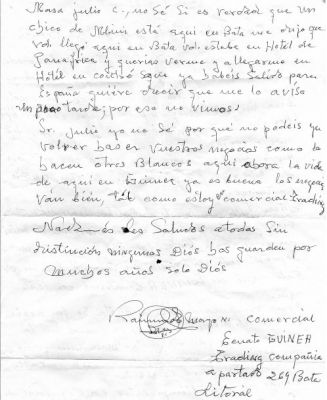 Masa Julio C., no sé si es verdad que un
chico de Mbini está aquí en Bata me dijo que
vd. llegó aquí en Bata vd. estaba en Hotel de
Panafrica y querias verme y al llegarme en
Hotel en coitré que ya habeis Salido para
España quiere decir que me lo aviso
un poco tarde, por eso no vimos.
Sr. Julio yo no sé por qué no podeis ya
volver hacer vuestros negocios como lo
hacen otros Blancos aquí ahora la vida
de aquí en Guinea ya es buena los negocios
ván bién, tál como estoy comercial trading
Nadamás les Saludos a todos Sin
distinción ningunos Diós hos guarden por
muchos años solo Diós
Raimundo comercial
Senate GUINEA
trading compañia
apartado 269 Bata
Litoral